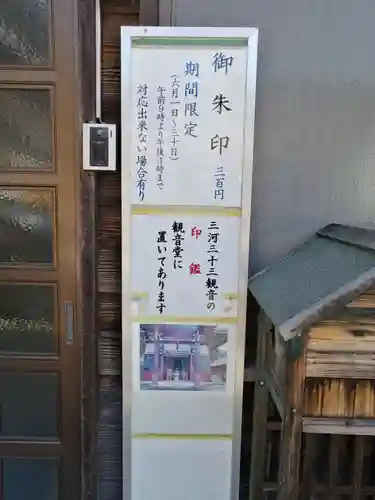 御朱印 三百円
期間限定
(六月一日〜三十日)
午前9時より午後1時まで
対応出来ない場合有り
三河三十三観音の
印鑑
観音堂に
置いてあります